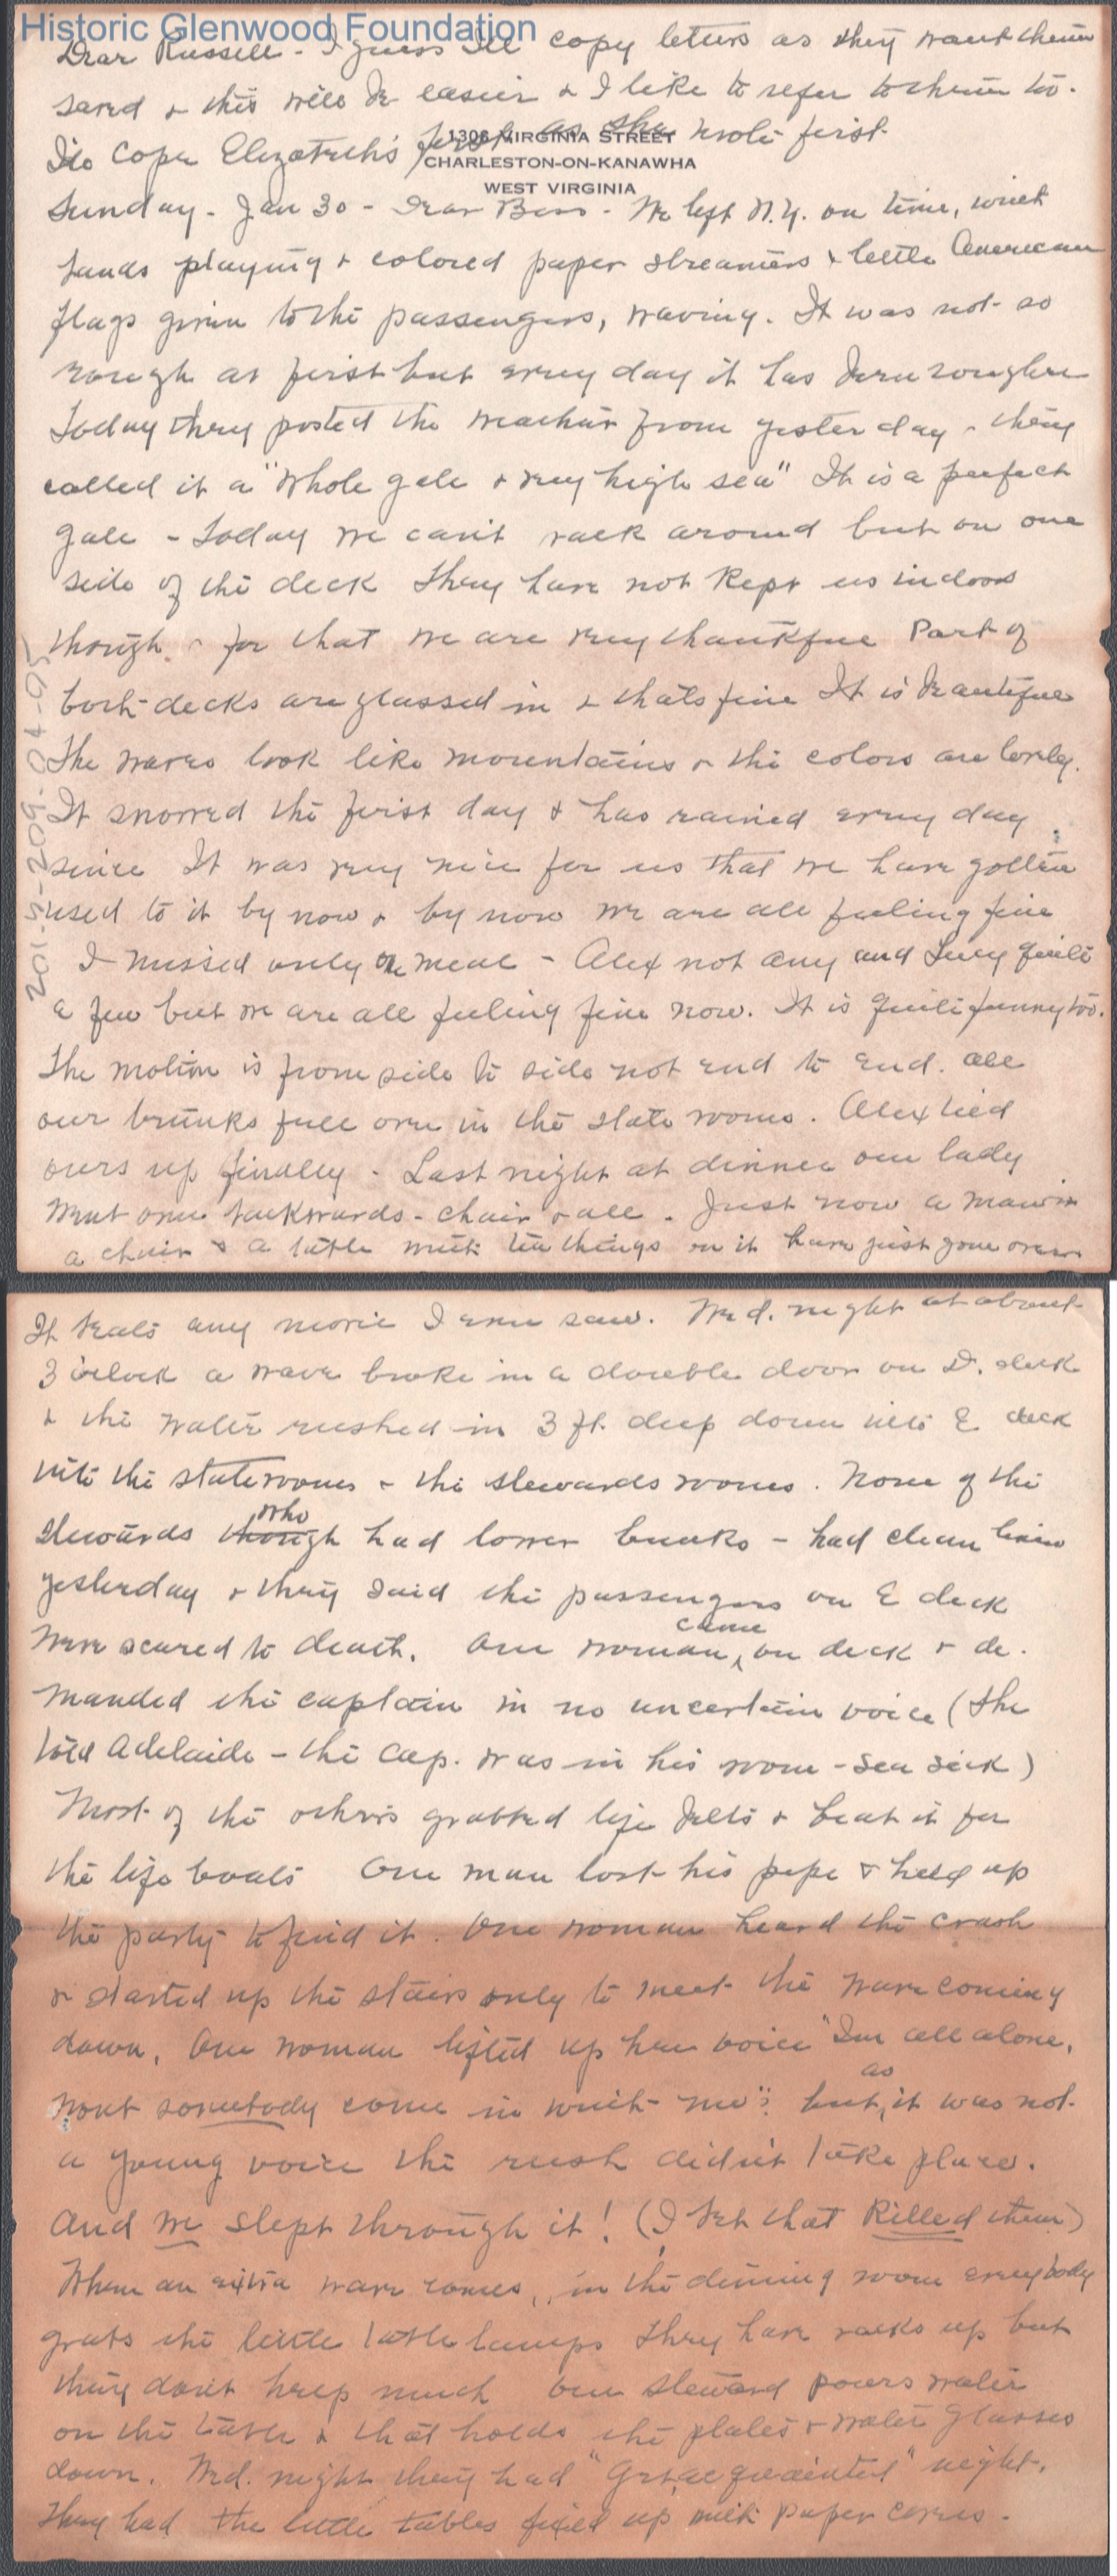 Historic Glenwood Foundation
Dear Russell - I guess I'll copy letters as they want them
saved & this will be easier & I like to refer to them too.
I'll copy Elizabeth's first as she wrote first
1306 VIRGINIA STREET
CHARLESTON-ON-KANAWHA
WEST VIRGINIA
Sunday - Jan 30 - Dear Bess - We left N.Y. on time, with
bands playing & colored paper streamers & little American
flags given to the passengers, waving. It was not so
rough at first but every day it has been rougher
Today they posted the weather from yesterday & they
called it a "whole gale & very high sea" It is a perfect
gale - Today we can't walk around but on one
side of the deck They have not kept us indoors
though & for that we are very thankful Part of
both decks are glassed in & thats fine It is beautiful
The waves look like mountains & the colors are lovely.
It snowed the first day & has rained every day
since It was very nice for us that we have gotten
used to it by now & by now we are all feeling fine
I missed only one meal - Alex not any and Lucy quite
a few but we are all feeling fine now. It is quite funny too.
The motion is from side to side not end to end. All
our trunks fall over in the state rooms. Alex tied
ours up finally - Last night at dinner one lady
went over backwards - chair & all. Just now a man in
a chair & a table with tea things on it have just gone over
201-5-209-04-95
It beats any movie I ever saw. Wed. night at about
3 o'clock a wave broke in a double door on D. deck
& the water rushed in 3 ft. deep down into E deck
into the staterooms & the stewards rooms. None of the
stewards though who had lower bunks - had clean linen
yesterday & they said the passengers on E deck
were scared to death. One woman came on deck & de-
manded the captain in no uncertain voice (She
told Adelaide - the Cap. was in his room - sea sick)
Most of the others grabbed life belts & beat it for
the life boats One man lost his pipe & held up
the party to find it. One woman heard the crash
& started up the stairs only to meet the wave coming
down. One woman lifted up her voice "I'm all alone,
wont somebody come in with me": but, as it was not
a young voice the rush didn't take place.
And we slept through it! (I bet that killed them)
When an extra wave comes, in the dining room everybody
grabs the little table lamps They have racks up but
they don't help much Our steward pours water
on the table & that holds the plates & water glasses
down. Wed. night they had "Get acquainted" night.
They had the little tables fixed up with paper covers -